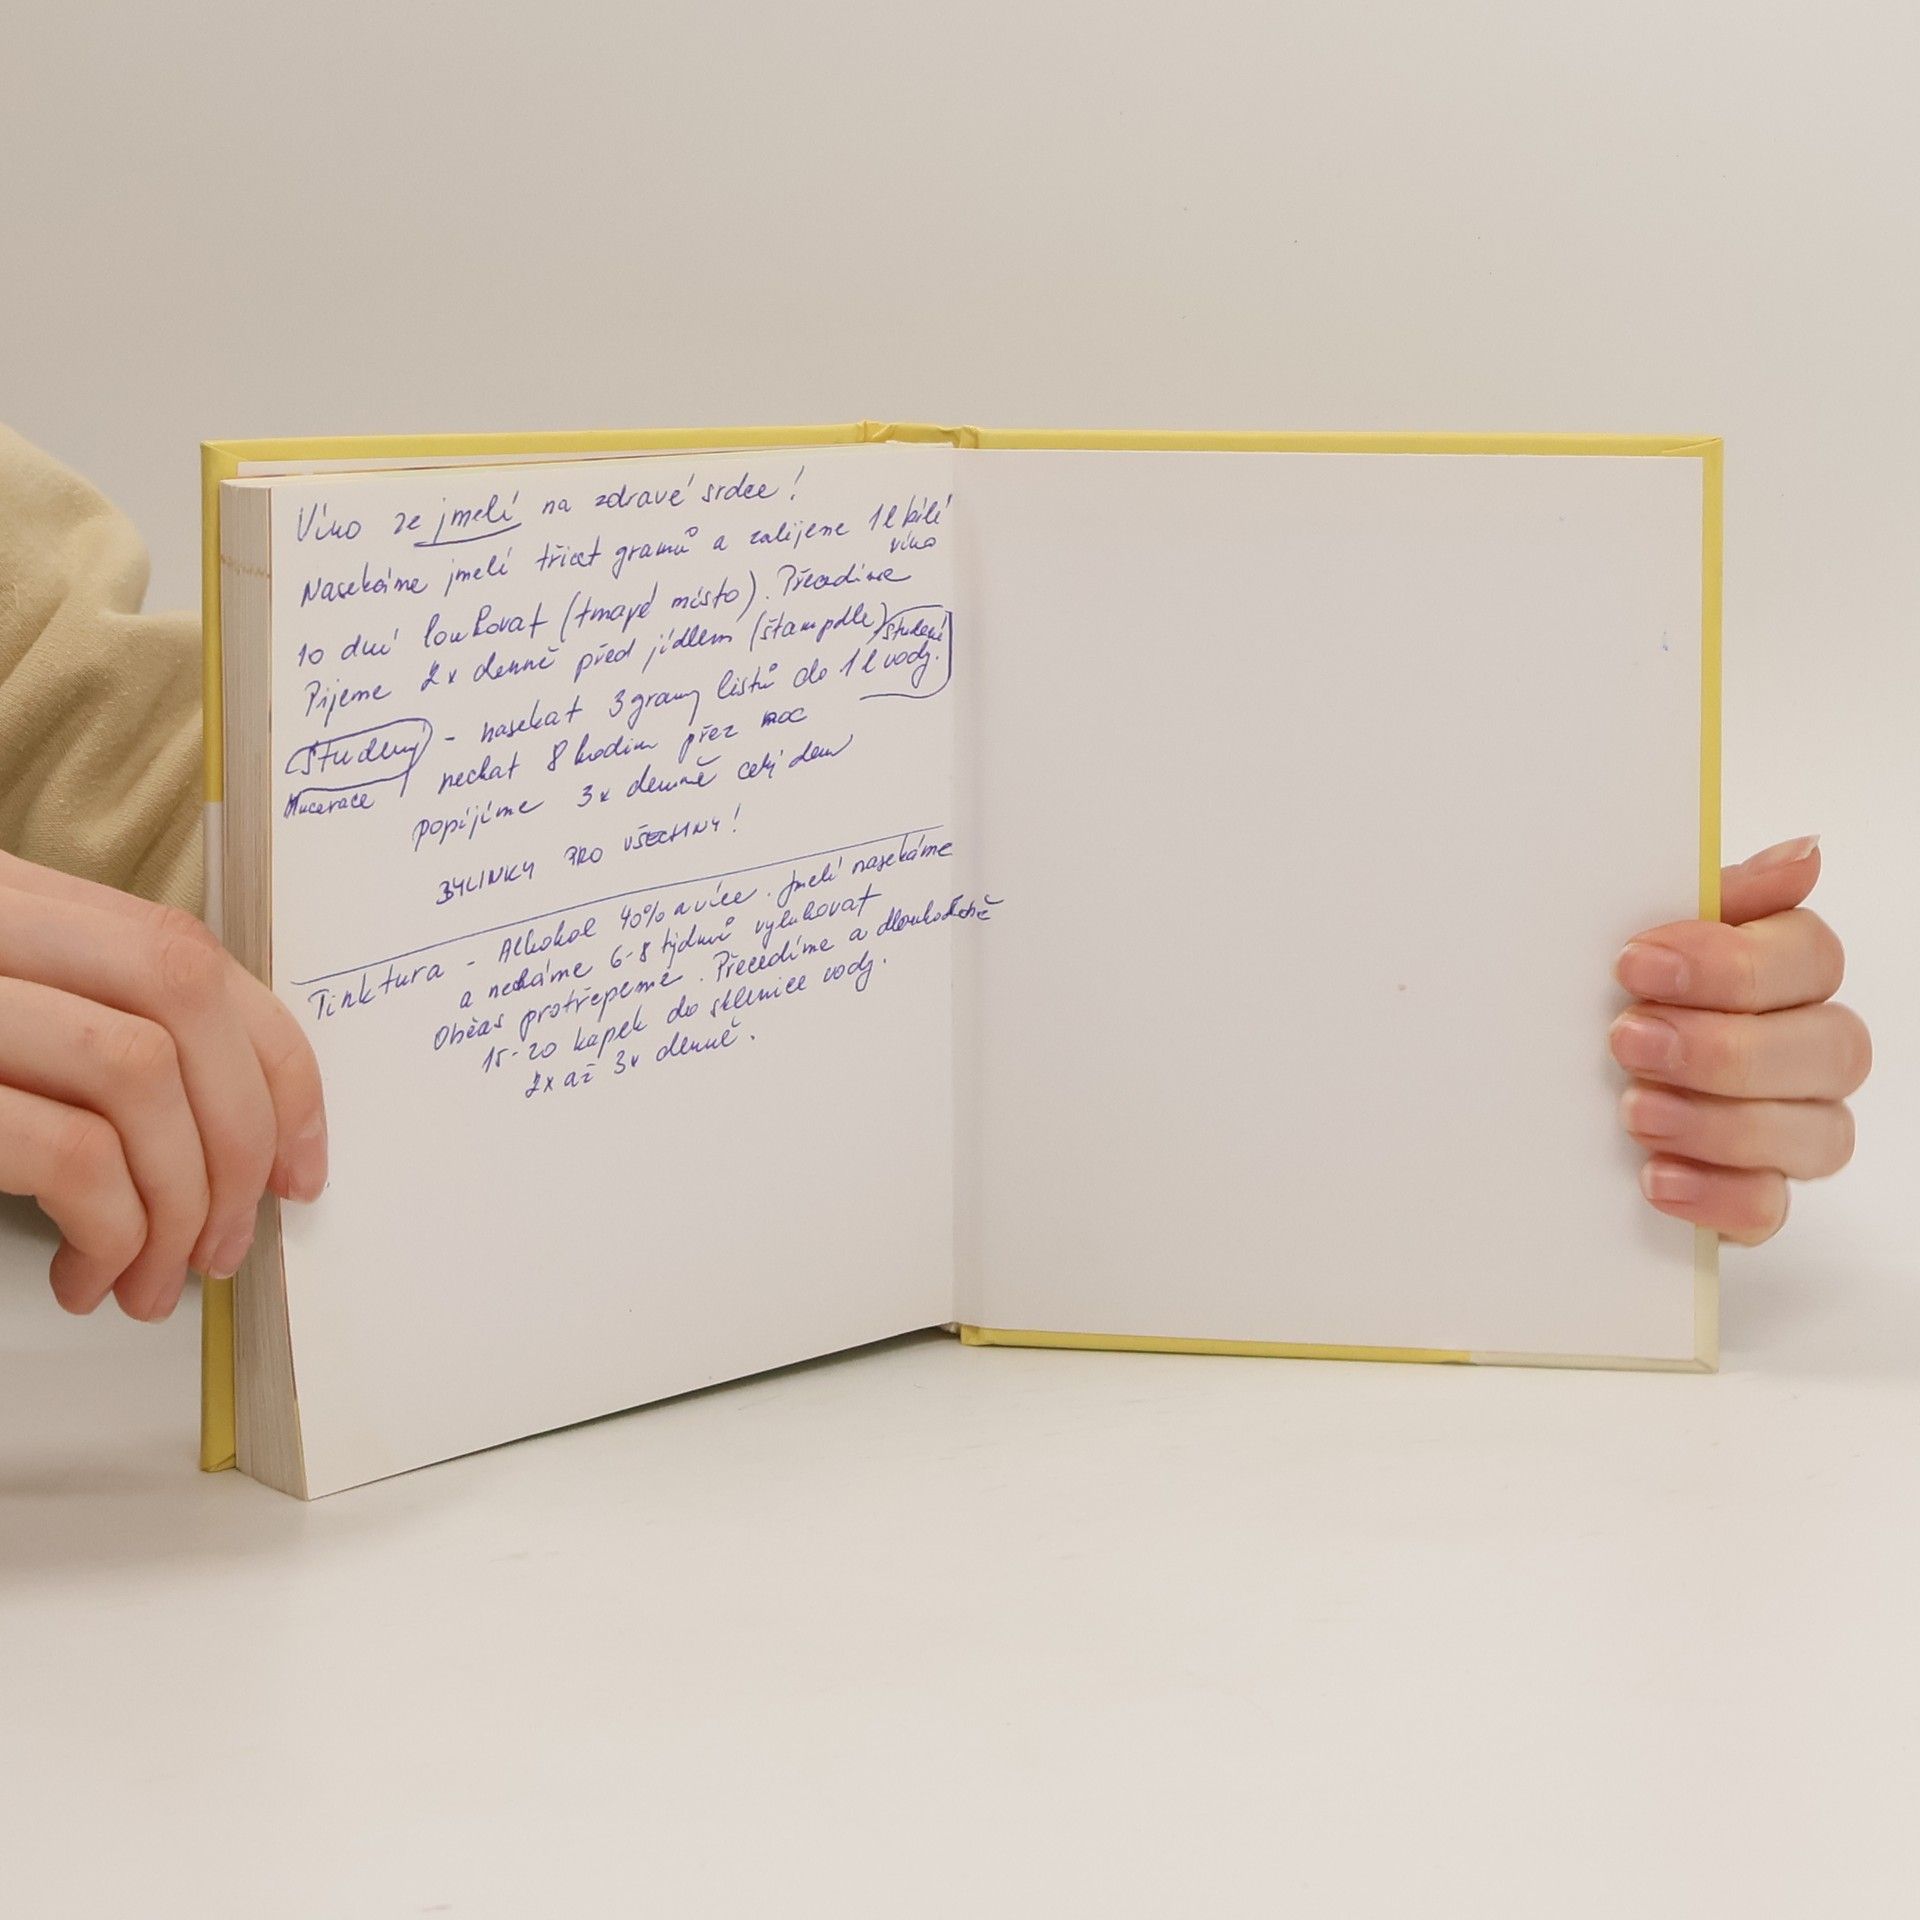 Víno ze jmelí na zdravé srdce!
Nasekáme jmelí třicet gramů a zalijeme 1 l bílé
víno
10 dní louhovat (tmavé místo). Přecedíme
Pijeme 2x denně před jídlem (štamprdle) studené
Studený - nasekat 3 gramy listů do 1 l vody.
nechat 8 hodin přes noc
Macerace
popíjíme 3x denně celý den
BYLINKY PRO VŠECHNY!
Tinktura - Alkohol 40% a více. Jmelí nasekáme
a necháme 6-8 týdnů vyluhovat
Občas protřepeme. Přecedíme a dlouhodobě
15-20 kapek do sklenice vody.
2x až 3x denně.